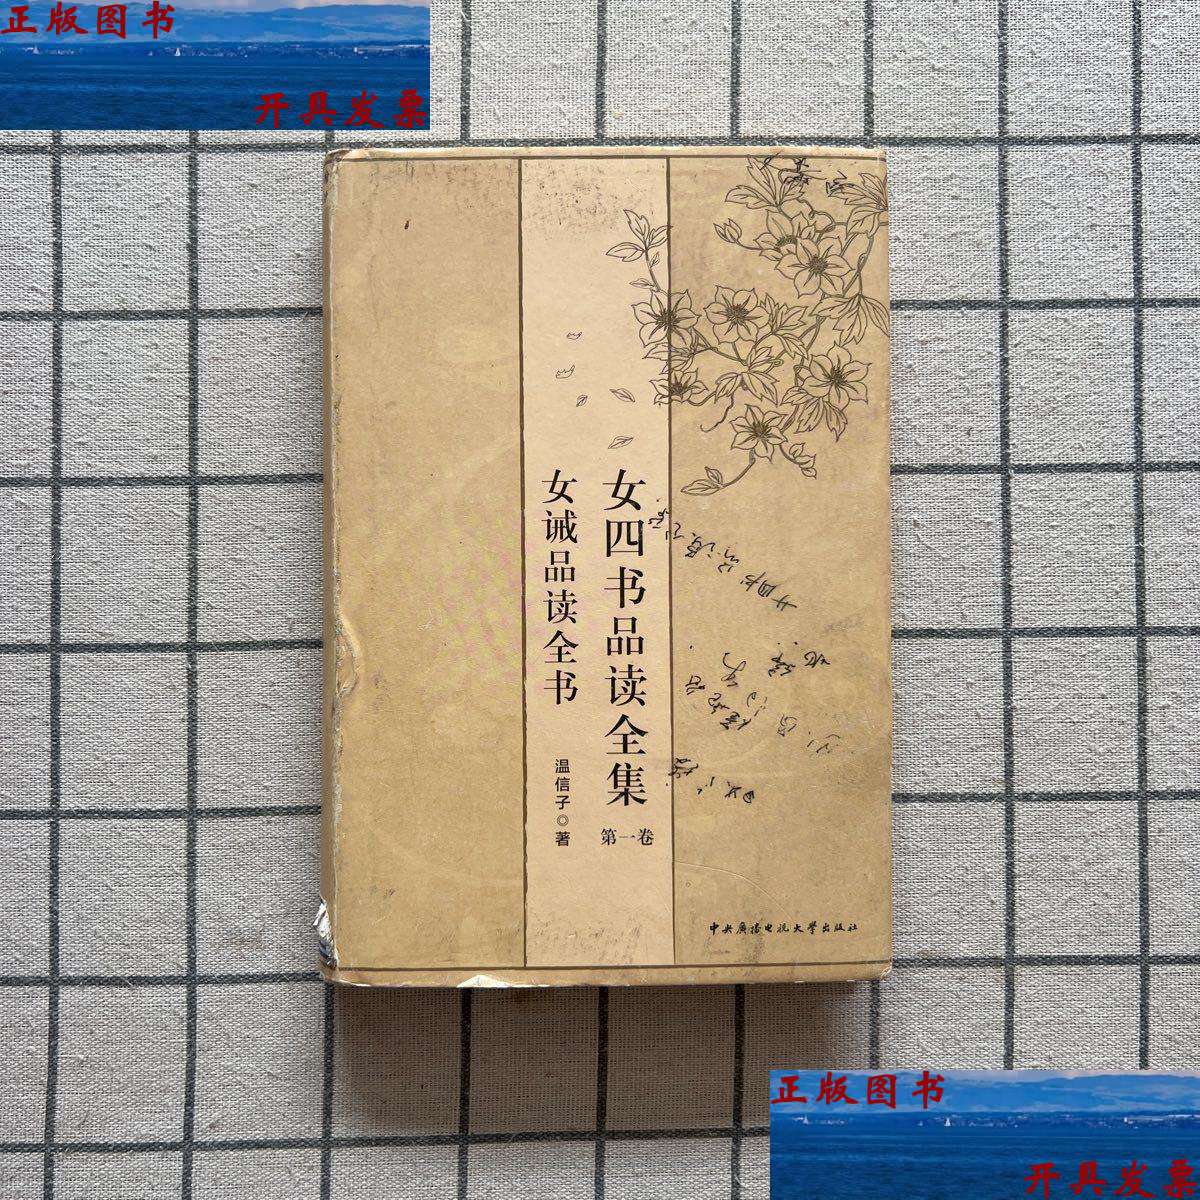 正版图书
开具发票
女四书品读全集
第一卷
女诫品读全书
温信子◎著
中央廣播电视大學出版社
正版图书
开具发票